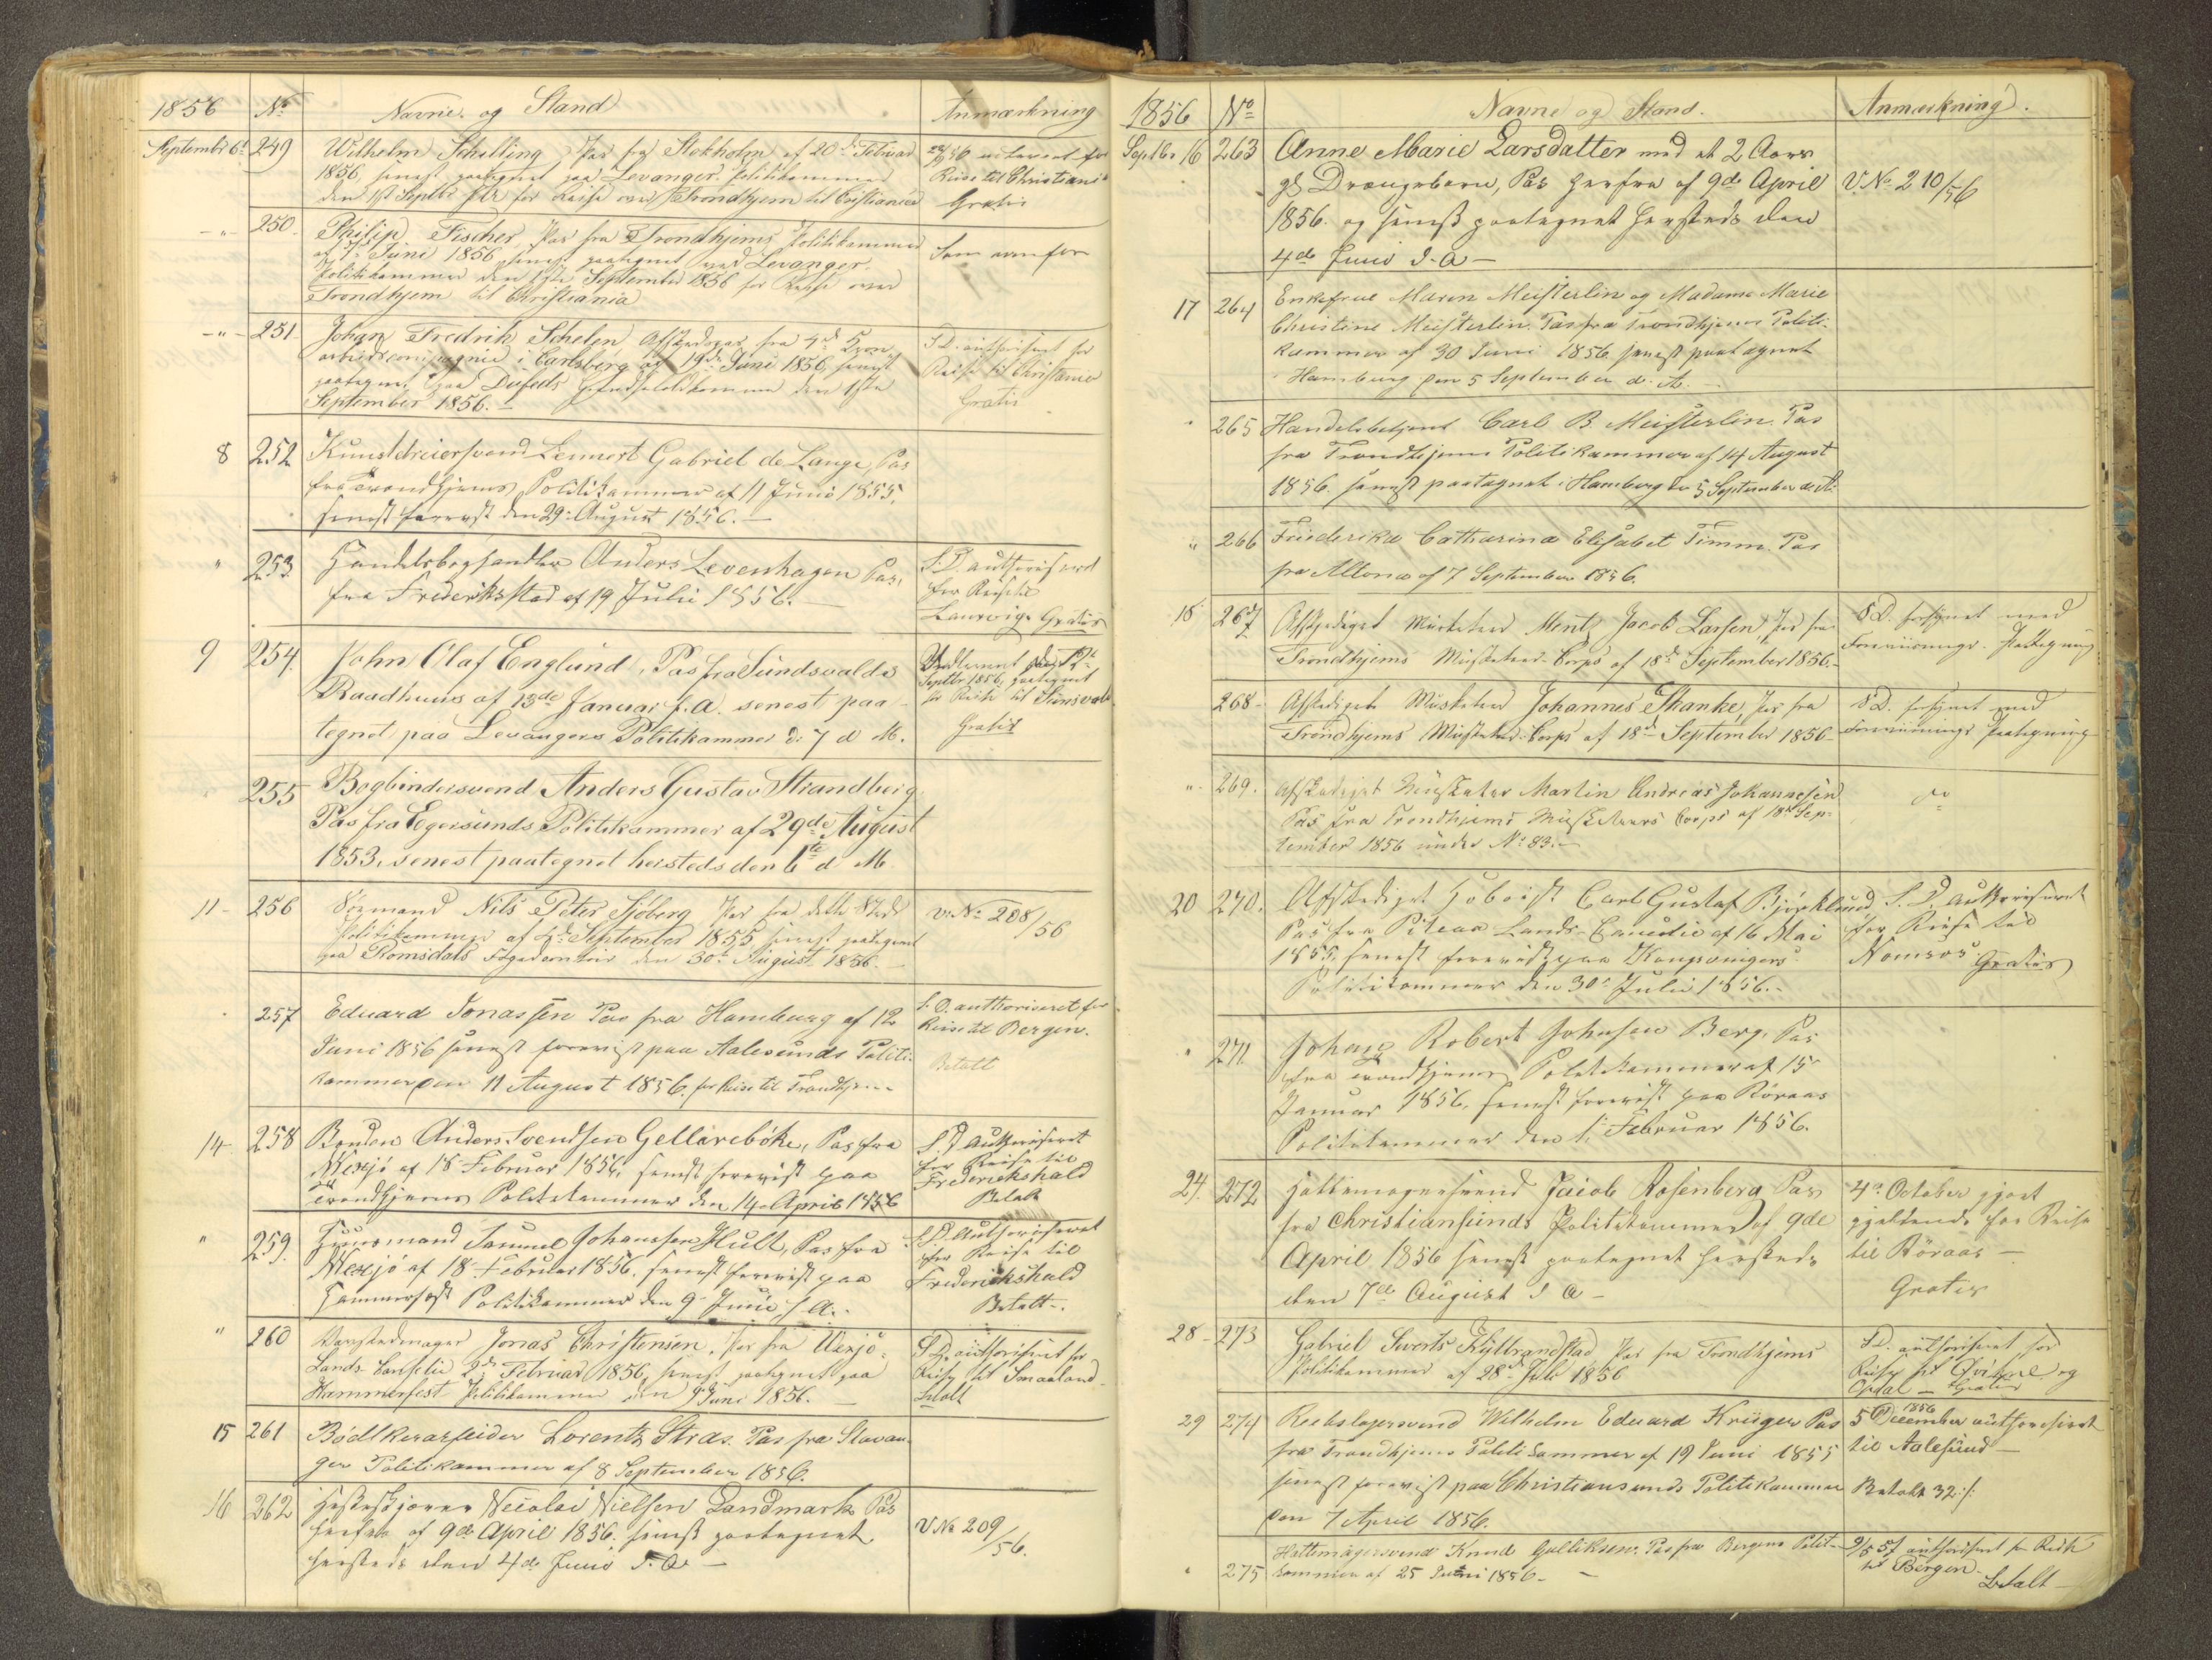 1856 No Navne og Stand Anmærkning
Septembr 6te 249 Wilhelm Schilling, Pas fra Stokholm af 20de Februar
1856, senest paategnet paa Levanger Politikammer
den 1ste Septbr for Reise over Trondhjem til Christiania
Reise til Christiania
Gratis
250 Philip Fischer Pas fra Trondhjems Politikammer
af 7de Juni 1856 senest paategnet ved Levanger
Politikammer den 1ste September 1856 for Reise over
Trondhjem til Christiania
Som ovenfor
251 Johan Fredrik Schelen Afskedspas fra 4de Kron
arbeidscompagnie i Carlsberg af 19de Juni 1856, senest
paategnet paa Dufeds den 1ste
September 1856.
S. D. authoriseret for
Reise til Christiania
Gratis
8 252 Kunstdreiersvend Lennert Gabriel de Lange, Pas
fra Trondhjems Politikammer af 11 Juni 1855,
senest forevist den 29de August 1856.
" 253 Handelsbogholder Anders Levenhagen Pas,
fra Frederiksstad af 19 Julii 1856.
S. D. authoriseret
for Reise til
Laurvig. Gratis
9 254 John Olaf Englund, Pas fra Sundsvalds
Raadhuus af 15de Januar f. A. senest paa
tegnet paa Levangers Politikammer d. 7 d. M.
Septbr 1856, paategnet
for Reise til Sundsvald
Gratis
255 Bogbindersvend Anders Gustav Strandberg
Pas fra Egersunds Politikammer af 29de August
1853, senest paategnet hersteds den 6te d. M.
11 256 Sømand Nils Peter Sjøberg Pas fra dette Steds
Politikammer af 4de September 1855, senest paategnet
paa Romsdals Fogedcontoir den 30te August 1856.
v. No 208/56
257 Eduard Jonassen Pas fra Hamburg af 12
Juni 1856 senest forevist paa Aalesunds Politi-
kammer den 11 August 1856. for Reise til Trondhjem
S. D. authoriseret for
Reise til Bergen.
Betalt
14 258 Bonden Anders Svendsen Gellarebøke, Pas fra
Wexjø af 18 Februar 1856, senest forevist paa
Trondhjems Politikammer den 14 April 1856
S. D. authoriseret
for Reise til
Frederickshald
Betalt
" 259. Huusmand Samuel Johanssen Hult, Pas fra
Wexjø af 18 Februar 1856. senest forevist paa
Hammerfest Politikammer den 9 Junii f. A.
S. D. Authoriseret
for Reise til
Frederickshald
Betalt.
" 260 Jonas Christensen, Pas fra Wexjø
Lands Cancelie 2de Februar 1856, senest paategnet paa
Hammerfest Politikammer den 9de Juni 1856.
S. D. authoriseret for
Reise til Smaaland
Betalt
15 261 Bødkerarbeider Lorentz Stras. Pas fra Stavan-
ger Politikammer af 8 September 1856.
16 262 Nicolai Nielsen Landmark Pas
herfra af 9de April 1856. senest paategnet
hersteds den 4de Junii d. A.
V No 209/56.
1856 No Navne og Stand. Anmærkning.
Septbr 16 263 Anne Marie Larsdatter med et 2 Aars
gl. Drængebarn, Pas herfra af 9de April
1856. og senest paategnet hersteds den
4de Junii d. A.
V. No 210/56
17 264 Enkefrue Maren Meisterlin og Madame Marie
Christine Meisterlin. Pas fra Trondhjems Politi-
kammer af 30 Juni 1856 senest paategnet
Hamburg den 5 September d. A.
265 Handelsbetjent Carl B. Meisterlin. Pas
fra Trondhjems Politikammer af 14 August
1856. senest paategnet i Hamburg den 5 September d. A.
" 266 Friederike Catharina Elisabet Timm. Pas
fra Altona af 7 September 1856.
18 267 Afskediget Musketeer Mentz Jacob Larsen, Pas fra
Trondhjems Musketeer-Corps af 18de September 1856.
S. D. forsynet med
Forevisnings Paategning
268 Afskediget Musketeer Johannes Skanke, Pas fra
Trondhjems Musketeer-Corps af 18de September 1856
S. D. forsynet med
Forevisnings Paategning
" 269. Afskediget Musketeer Martin Andreas Johannesen
Pas fra Trondhjems Musketeers Corps af 18de Sep-
tember 1856 under No 83.
do
20 270. Afskediget Hoboist Carl Gustaf Bjørklund,
Pas fra Piteaa Lands-Cancelie af 16 Mai
1855, senest forevist paa Kongsvingers
Politikammer den 30te Julii 1856.
S. D. authoriseret
for Reise til
Namsos Gratis
" 271 Johan Robert Johnsen Berg, Pas
fra Trondhjems Politikammer af 15
Januar 1856, senest forevist paa Röraas
Politikammer den 1. Februar 1856.
24. 272 Hattemagersvend Jacob Rosenberg Pas
fra Christiansunds Politikammer af 9de
April 1856 senest paategnet hersteds
den 7de August d. A
4de October gjort
gjeldende for Reise
til Röraas
Gratis
28 273 Gabriel Sverts Kylbrandstad Pas fra Trondhjems
Politikammer af 28de Juli 1856
S. D. authoriseret for
Reise til Qvikne og
Opdal Gratis
29 274 Reebslagersvend Wilhelm Eduard Krüger Pas
fra Trondhjems Politikammer af 19 Juni 1855
senest forevist paa Christiansunds Politikammer
den 7 April 1856.
5 December 1856 authoriseret
til Aalesund
Betalt 32 s.
" 275 Hattemagersvend Knud Gulliksen. Pas fra Bergens Politi-
kammer af 25 Juni 1856.
9/5 57 authoriseret for Reise
til Bergen
Betalt